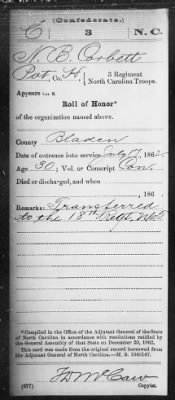 (Confederate.)
C 3 N. C.
N. B. Corbett
Pvt, Co. H, 3 Regiment
North Carolina Troops.
Appears on a
Roll of Honor*
of the organization named above.
County Bladen
Date of entrance into service July 17, 1862.
Age 30; Vol. or Conscript Con.
Died or discharged, and when
, 186 .
Remarks: Transferred
to the 18th Regt,
*Compiled in the Office of the Adjutant General of the State
of North Carolina in accordance with resolutions ratified by
the General Assembly of that State on December 20, 1862.
This card was made from the original record borrowed from
the Adjutant General of North Carolina.—M. S.
(657) Copyist.